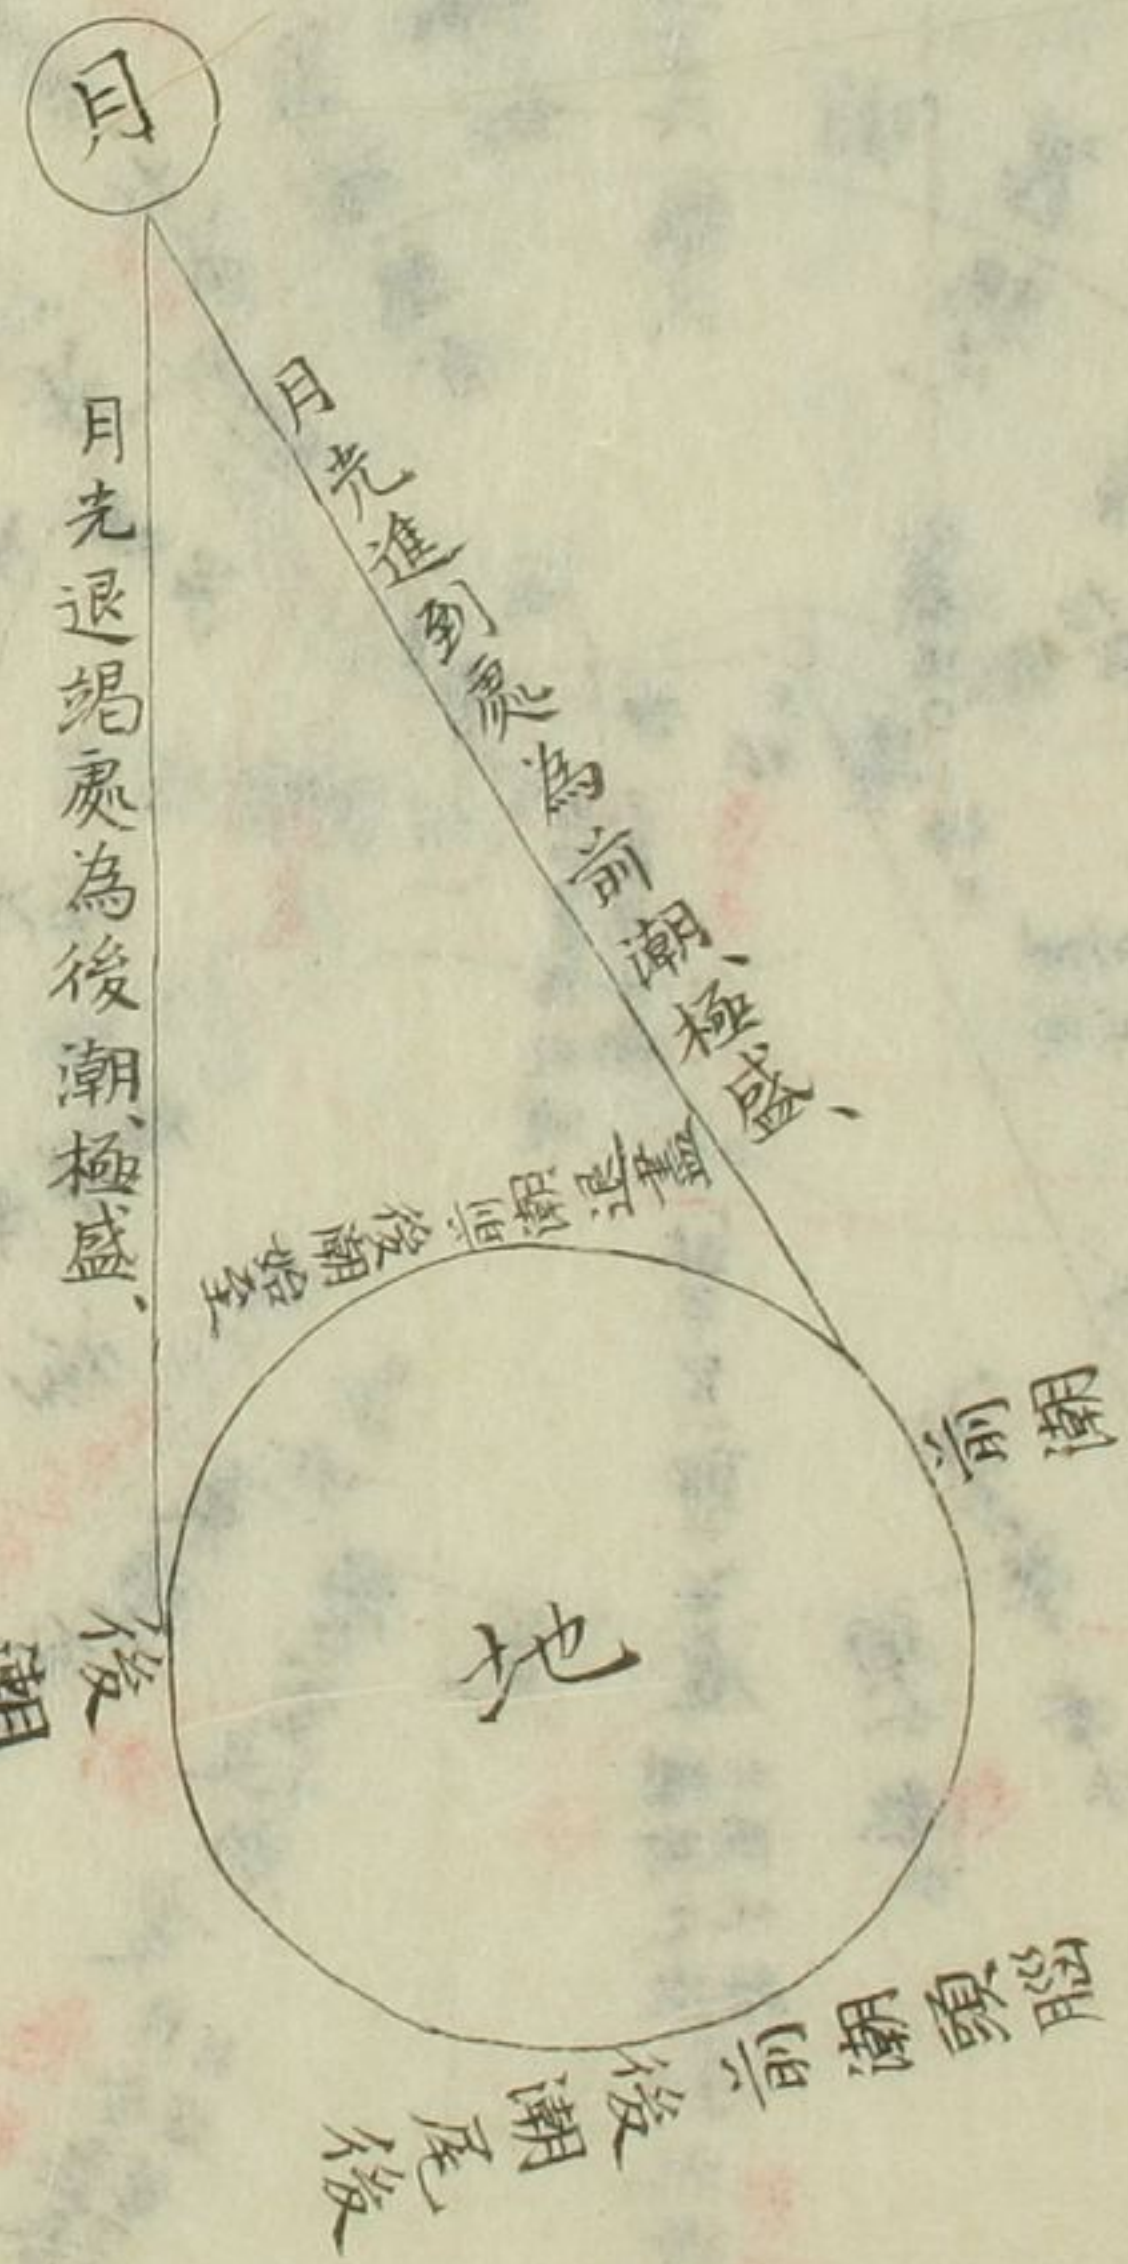 月
月光進到處為前潮、極盛、
月光退竭處為後潮、極盛、
前潮退盡
後潮始至
前潮
後潮
地
前潮頭
後潮尾後